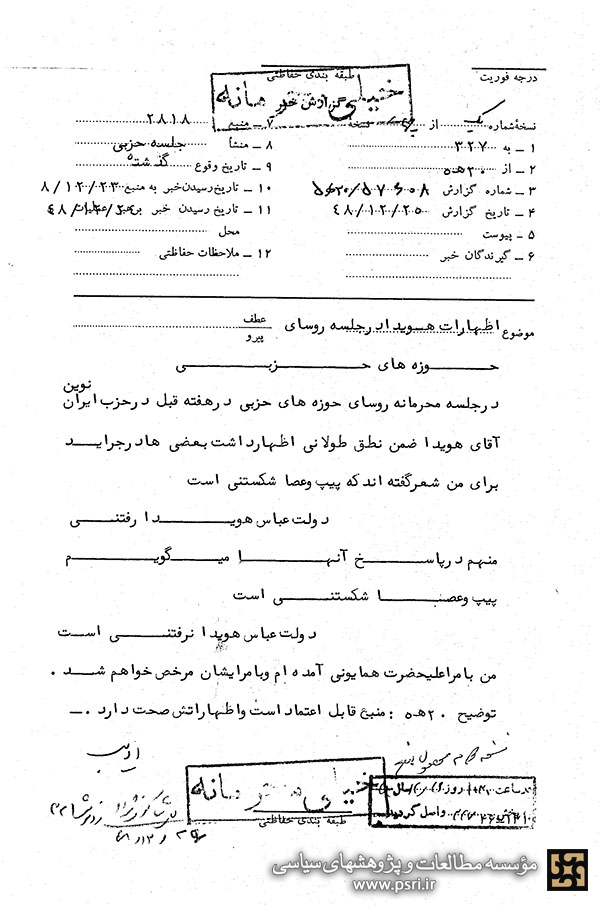 درجه فوریت
طبقه بندی حفاظتی
گزارش خبر
خیلی محرمانه
نسخهٔ شماره یک از نسخه
۱ - به ۳۲۷
۲ - از ۲۰ه۵
۳ - شماره گزارش
۴ - تاریخ گزارش ۴۸/۱۲/۲۵
۵ - پیوست
۶ - گیرندگان خبر
۷ - منبع ۲۸۱۸
۸ - منشأ جلسه حزبی
۹ - تاریخ وقوع گذشته
۱۰ - تاریخ رسیدن خبر به منبع
۱۱ - تاریخ رسیدن خبر برهبر عملیات
محل
۱۲ - ملاحظات حفاظتی
موضوع اظهارات هویدا در جلسه روسای
عطف
پیرو
حوزه های حزبی
در جلسه محرمانه روسای حوزه های حزبی در هفته قبل در حزب ایران نوین
آقای هویدا ضمن نطق طولانی اظهار داشت بعضی ها در جراید
برای من شعر گفته اند که پیپ و عصا شکستنی است
دولت عباس هویدا رفتنی
منهم در پاسخ آنها میگویم
پیپ و عصا شکستنی است
دولت عباس هویدا نرفتنی است
من بامر اعلیحضرت همایونی آمده ام و بامر ایشان مرخص خواهم شد .
توضیح ۲۰ه۵ : منبع قابل اعتماد است و اظهاراتش صحت دارد . -
خیلی محرمانه
طبقه بندی حفاظتی
واصل گردید
مؤسسه مطالعات و پژوهشهای سیاسی
www.psri.ir